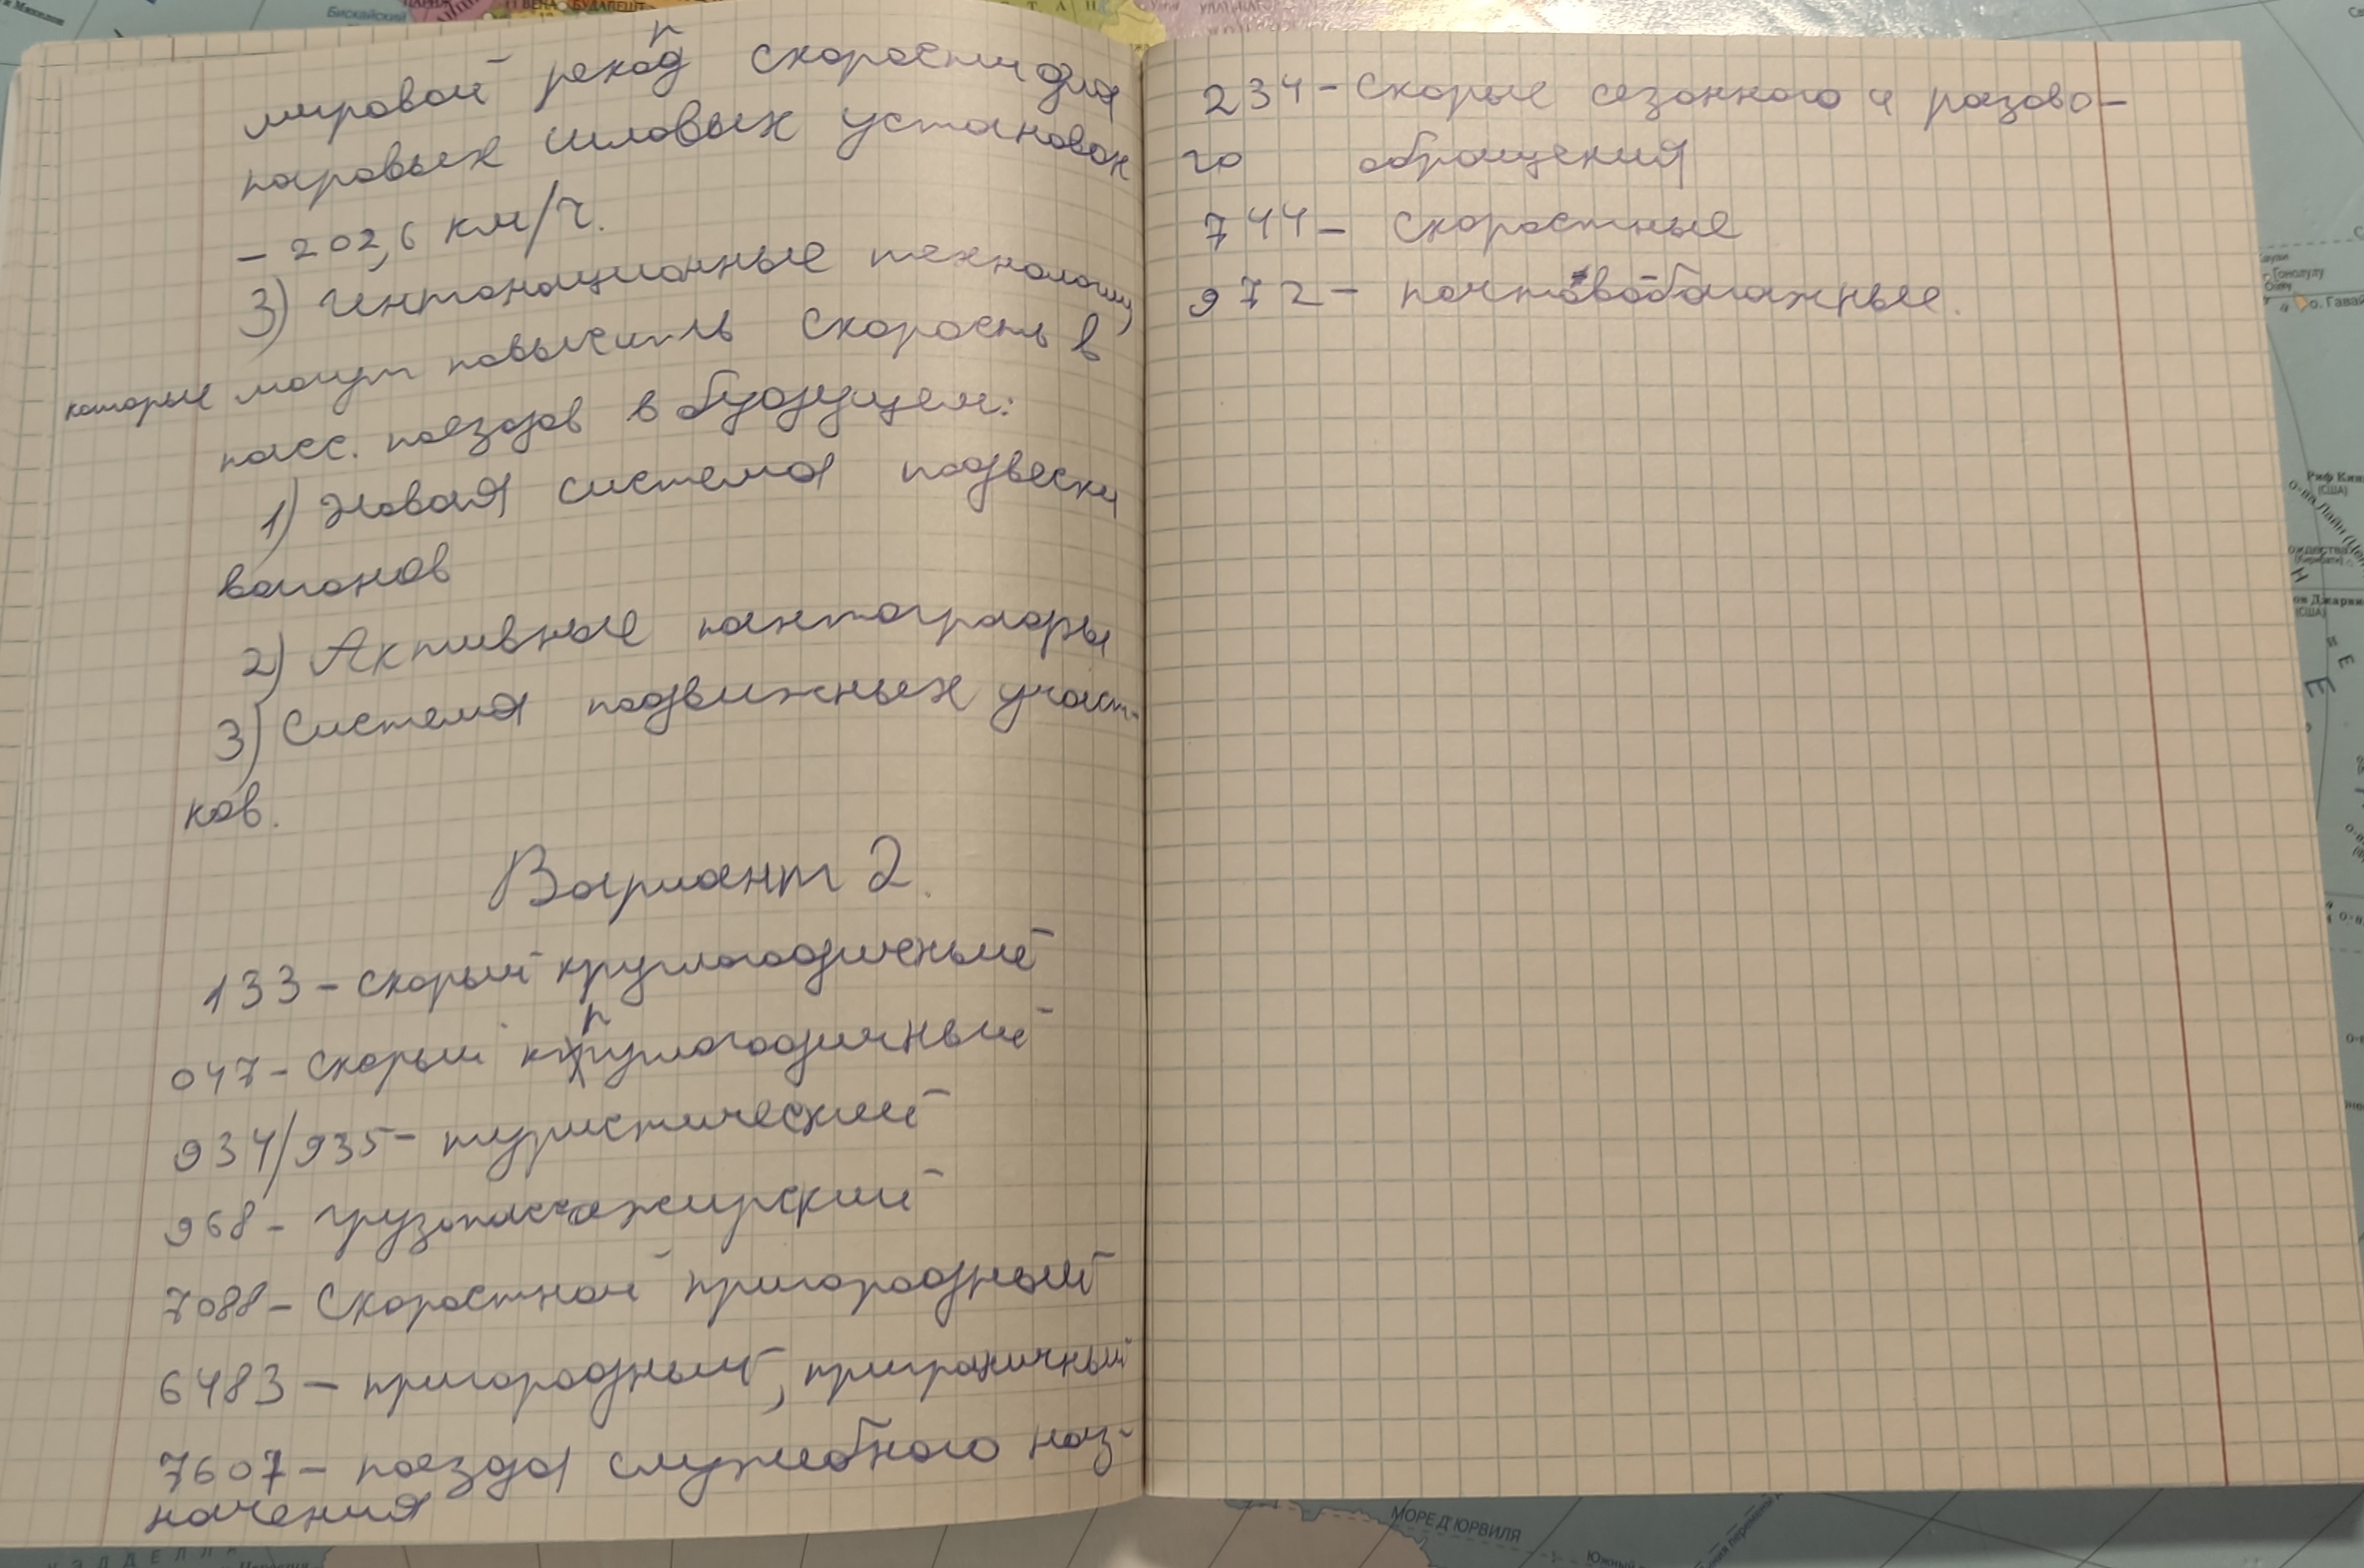 мировой рекорд скорости для
паровых силовых установок
- 202,6 км/ч.
3) Интонационные технологии,
которые могут повысить скорость в
пасс. поездов в будующем:
1) Новая система подвески
вагонов
2) Активные пантографы
3) Система подвижных участ-
ков.
Вариант 2.
133 - скорый круглогодичный
047 - скорый круглогодичный
934/935 - туристический
968 - грузопассажирский
7088 - Скоростной пригородный
6483 - пригородный, приграничный
7607 - поезда служебного наз-
начения
234 - Скорые сезонного и разово-
го обращения
744 - скоростные
972 - почтовобагажные.
Бискайский
ВЕНА
БУДАПЕШТ
Гонолулу
о. Гавай
(США)
(Кирибати)
(США)
МОРЕ Д'ЮРВИЛЯ